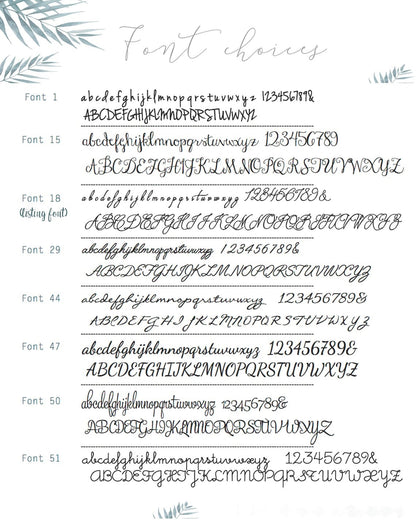 Font choices
Font 1 abcdefghijklmnopqrstuvwxyz 123456789&
ABCDEFGHIJKLMNOPQRSTUVWXYZ
Font 15 abcdefghijklmnopqrstuvwxyz 123456789
ABCDEFGHIJKLMNOPQRSTUVWXYZ
Font 18 abcdefghijklmnopqrstuvwxyz 123456789&
(listing font) ABCDEFGHIJKLMNOPQRSTUVWXYZ
Font 29 abcdefghijklmnopqrstuvwxyz 123456789&
ABCDEFGHIJKLMNOPQRSTUVWXYZ
Font 44 abcdefghijklmnopqrstuvwxyz 123456789&
ABCDEFGHIJKLMNOPQRSTUVWXYZ
Font 47 abcdefghijklmnopqrstuvwxyz 123456789&
ABCDEFGHIJKLMNOPQRSTUVWXYZ
Font 50 abcdefghijklmnopqrstuvwxyz 123456789&
ABCDEFGHIJKLMNOPQRSTUVWXYZ
Font 51 abcdefghijklmnopqrstuvwxyz 123456789&
ABCDEFGHIJKLMNOPQRSTUVWXYZ